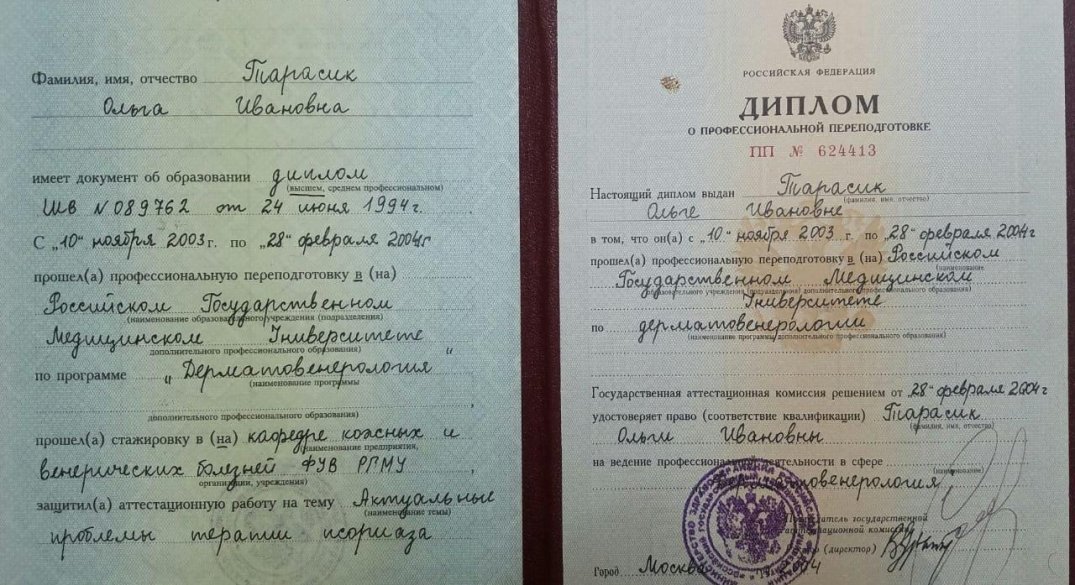 Фамилия, имя, отчество Тарасик
Ольга Ивановна
имеет документ об образовании диплом
(высшем, среднем профессиональном)
ШВ N 089762 от 24 июня 1994г.
С „10" ноября 2003г. по „28" февраля 2004г
прошел(а) профессиональную переподготовку в (на)
Российском Государственном
(наименование образовательного учреждения (подразделения)
Медицинском Университете
дополнительного профессионального образования)
по программе „Дерматовенерология"
(наименование программы
дополнительного профессионального образования)
прошел(а) стажировку в (на) кафедре кожных и
(наименование предприятия,
венерических болезней ФУВ РГМУ
организации, учреждения)
защитил(а) аттестационную работу на тему Актуальные
(наименование темы)
проблемы терапии псориаза
РОССИЙСКАЯ ФЕДЕРАЦИЯ
ДИПЛОМ
О ПРОФЕССИОНАЛЬНОЙ ПЕРЕПОДГОТОВКЕ
ПП № 624413
Настоящий диплом выдан Тарасик
(фамилия, имя, отчество)
Ольге Ивановне
в том, что он(а) с „10" ноября 2003 г. по „28" февраля 2004г
прошел(а) профессиональную переподготовку в (на) Российском
(наименование
Государственном Медицинском
образовательного учреждения (подразделения) дополнительного профессионального образования)
Университете
по дерматовенерологии
(наименование программы дополнительного профессионального образования)
Государственная аттестационная комиссия решением от „28" февраля 2004г
удостоверяет право (соответствие квалификации) Тарасик
(фамилия, имя, отчество)
Ольги Ивановны
на ведение профессиональной деятельности в сфере
(наименование)
Дерматовенерология
Председатель государственной
аттестационной комиссии
(директор)
Город Москва 2004